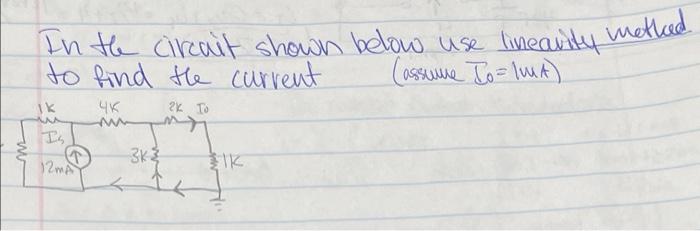 In the circuit shown below use linearity method
to find the current (assume Io=1mA)
1K 4K 2K Io
Is
12mA 3K 1K